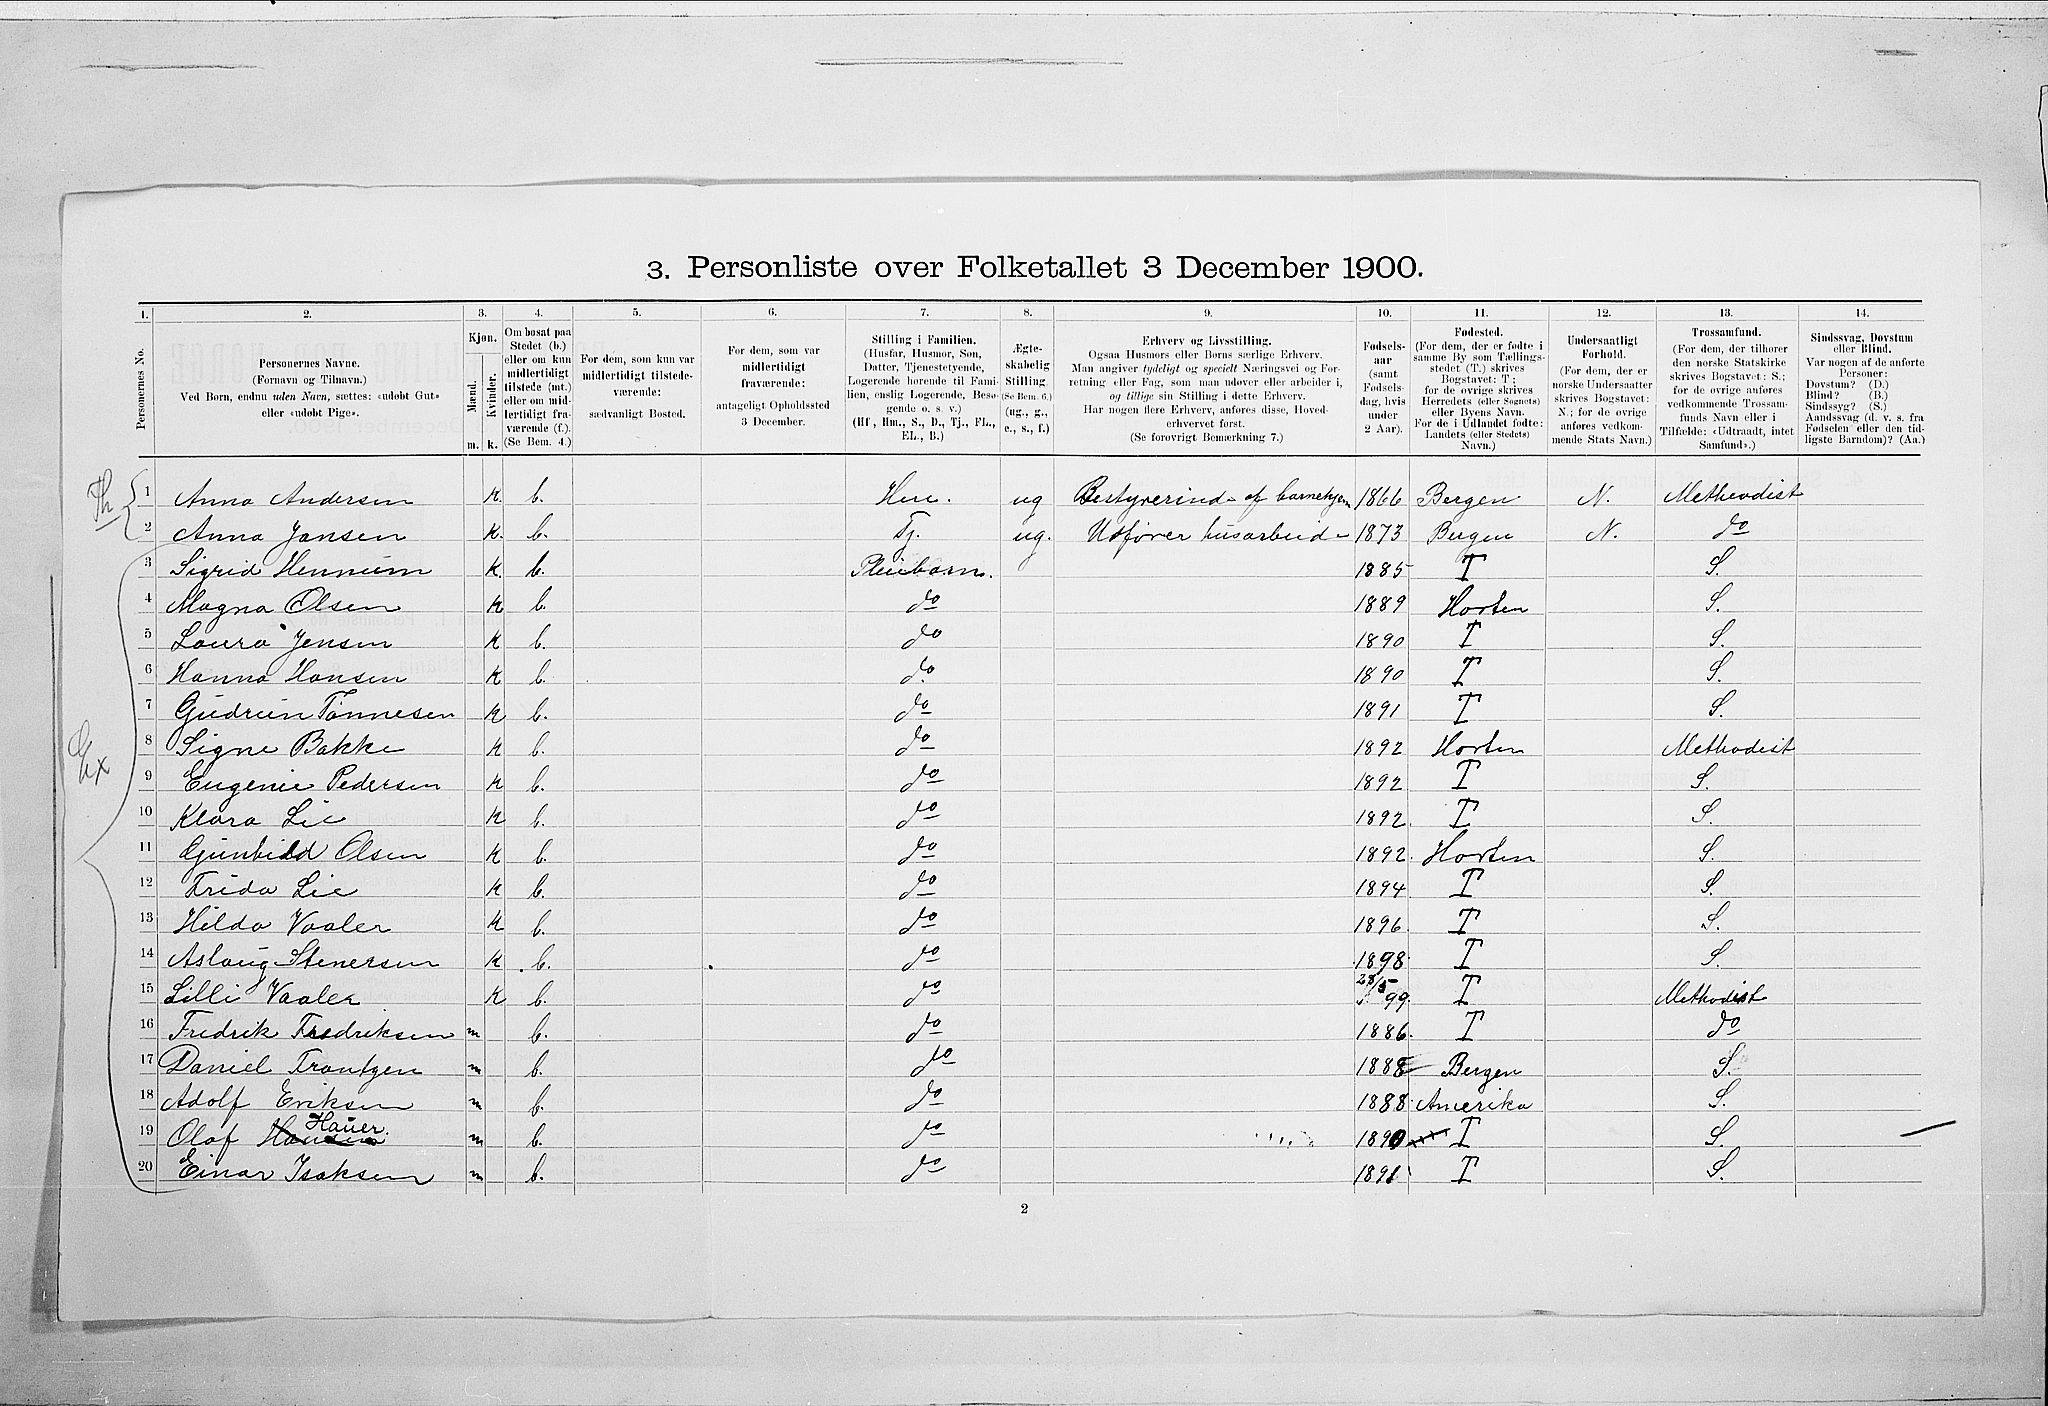 3. Personliste over Folketallet 3 December 1900.
1. 2. 3. 4. 5. 6. 7. 8. 9. 10. 11. 12. 13. 14.
Personernes No.
Personernes Navne.
(Fornavn og Tilnavn.)
Ved Børn, endnu uden Navn, sættes: «udøbt Gut»
eller «udøbt Pige».
Kjøn.
Mænd.
Kvinder.
m. k.
Om bosat paa
Stedet (b.)
eller om kun
midlertidigt
tilstede (mt.)
eller om mid-
lertidigt fra-
værende (f.).
(Se Bem. 4.)
For dem, som kun var
midlertidigt tilstede-
værende:
sædvanligt Bosted.
For dem, som var
midlertidigt
fraværende:
antageligt Opholdssted
3 December.
Stilling i Familien.
(Husfar, Husmor, Søn,
Datter, Tjenestetyende,
Logerende hørende til Fami-
lien, enslig Logerende, Besø-
gende o. s v.)
(Hf, Hm., S., D., Tj., FL.,
EL., B.)
Ægte-
skabelig
Stilling.
(Se Bem. 6.)
(ug., g.,
e., s., f.)
Erhverv og Livsstilling.
Ogsaa Husmors eller Børns særlige Erhverv.
Man angiver tydeligt og specielt Næringsvei og For-
retning eller Fag, som man udøver eller arbeider i,
og tillige sin Stilling i dette Erhverv.
Har nogen flere Erhverv, anføres disse, Hoved-
erhvervet først.
(Se forøvrigt Bemærkning 7.)
Fødsels-
aar
(samt
Fødsels-
dag, hvis
under
2 Aar).
Fødested.
(For dem, der er fødte i
samme By som Tællings-
stedet (T.) skrives
Bogstavet: T;
for de øvrige skrives
Herredets (eller Sognets)
eller Byens Navn.
For de i Udlandet fødte:
Landets (eller Stedets)
Navn.)
Undersaatligt
Forhold.
(For dem, der er
norske Undersaatter
skrives Bogstavet:
N.; for de øvrige
anføres vedkom-
mende Stats Navn.)
Trossamfund.
(For dem, der tilhører
den norske Statskirke
skrives Bogstavet: S.;
for de øvrige anføres
vedkommende Trossam-
funds Navn eller i
Tilfælde: «Udtraadt, intet
Samfund».)
Sindssvag, Døvstum
eller Blind.
Var nogen af de anførte
Personer:
Døvstum? (D.)
Blind? (B.)
Sindssyg? (S.)
Aandssvag (d. v. s. fra
Fødselen eller den tid-
ligste Barndom)? (Aa.)
1 Anna Andersen K. b. ug Bestyrerind- af barnehjem 1866 Bergen N. Metheodist
2 Anna Jansen K. b. Tj. ug. Udfører husarbeid- 1873 Bergen N. do
3 Sigrid Hennum K. b. Pleiebarn. 1885 T S.
4 Magna Olsen K b. do 1889 Horten S.
5 Laura Jensen K b. do 1890 T S.
6 Hanna Hansen K b. do 1890 T S.
7 Gudrun Tønnesen K b. do 1891 T S.
8 Signe Bakke K b. do 1892 Horten Methodist
9 Eugenie Pedersen K b. do 1892 T S.
10 Klara Lie K b. do 1892. T S.
11 Gunhild Olsen K b. do 1892. Horten S.
12 Frida Lie K b. do 1894 T S.
13 Hilda Vaaler K b. do 1896 T S.
14 Aslaug Stenersen K b. do 1898 T S.
15 Lilli Vaaler K b. do 28/5 99. T Methodist
16 Fredrik Fredriksen m b. do 1886. T do
17 Daniel Frantzen m b. do 1888 Bergen S.
18 Adolf Eriksen m b. do 1888. Amerika S.
19 Olaf Hansen Hauer. m b. do 1890 T S.
20 Einar Isaksen m b. do 1891 T S.
2